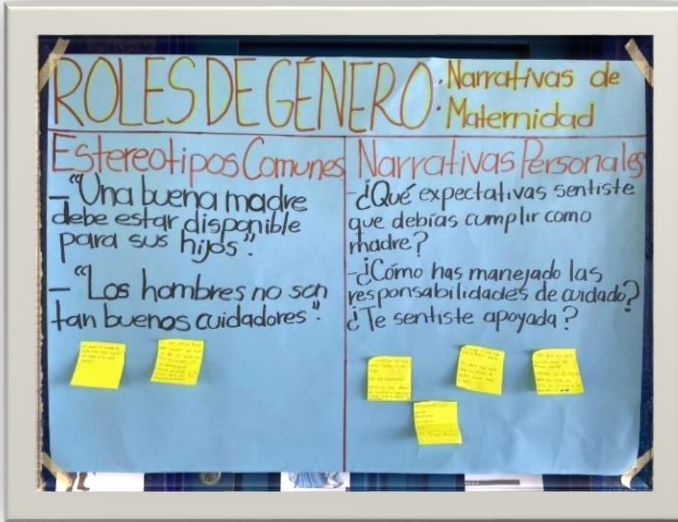 ROLES DE GÉNERO: Narrativas de
Maternidad
Estereotipos Comunes
— "Una buena madre
debe estar disponible
para sus hijos".
— "Los hombres no son
tan buenos cuidadores".
Narrativas Personales
- ¿Qué expectativas sentiste
que debías cumplir como
madre?
- ¿Cómo has manejado las
responsabilidades de cuidado?
¿Te sentiste apoyada?